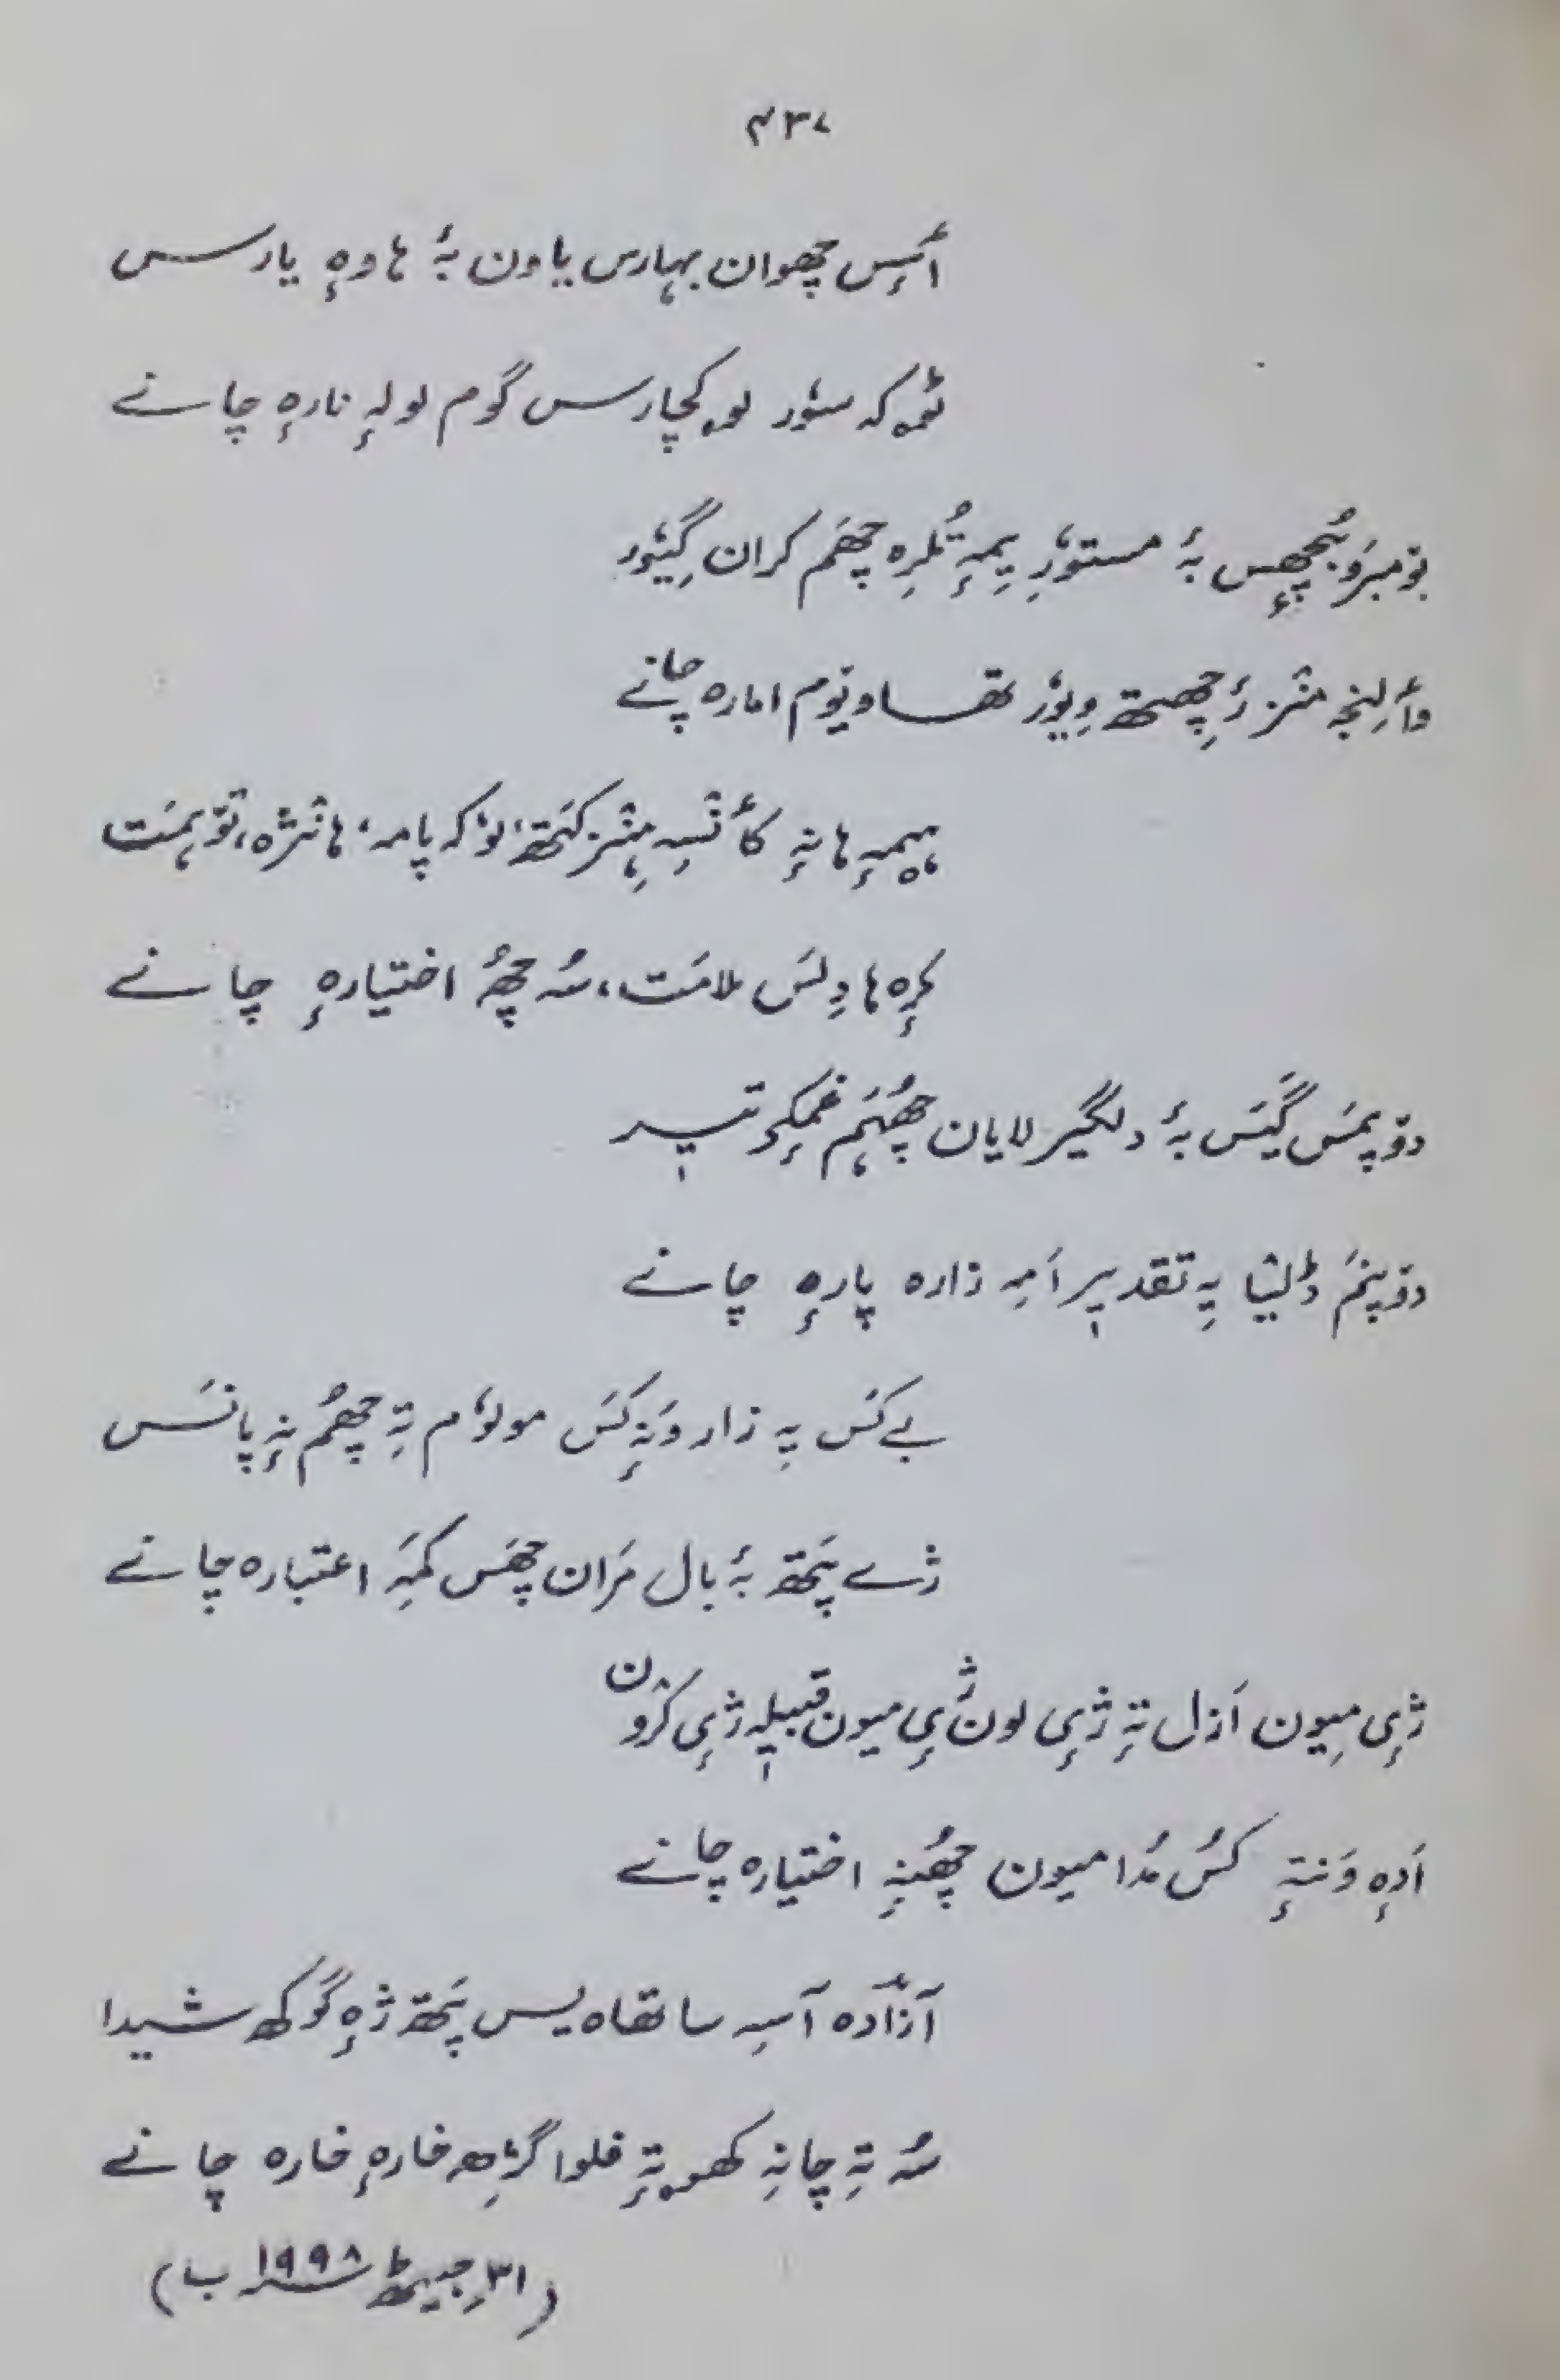 ۴۳۷
أسٕس چھوان بہارس یاون بہٕ ہاوہٕ یارس
ٹوٗمہٕ کہ سوٗر لوٗکچارس گوم لولہٕ نارہٕ چانے
بۆمبرَو بُچھِس بہٕ مستوٗرِ یِمہٕ تُلرِہ چھَم کران گِیوٗر
وألِنجہِ منٛز رٔچھِتھ وِیوٗر تھاونوم امارہ چانے
ہیمہٕ ہانہٕ کأنٛسہِ ہِنٛز کَتھ، لوٗکہ پامہ، ہانٛژہ، تۆہمَت
کرٕہ ہا دِلَس ملامَت، سُہ چھُ اختیارہٕ چانے
دۆپمَس گَیَس بہٕ دلگیر لایان چھُہَم غمٕکۍ تیر
دۆپنَم ڈٔلیا یہِ تقدیر اَمہِ زارہ پارہٕ چانے
بےکَس یہِ زار وَنہٕ کَس مولوٗم تہِ چھُم نہٕ پانَس
ژے پَتھ بہٕ بال مَران چھَس کَمہِ اعتبارہ چانے
ژٕی میون اَزل تہٕ ژٕی لون ژٕی میون قبیلہٕ ژٕی کرٛون
اَدہٕ وَنتہٕ کُس مُدا میون چھُنہٕ اختیارہ چانے
آزادہ آسہِ ساتھاہ یس پَتھ ژہٕ گوکھ شیدا
سُہ تہِ چانہِ کھوٚتہٕ فلوا گژھِ خارہٕ خارہ چانے
(۳۱ جیٹھ ۱۹۹۸ ب)